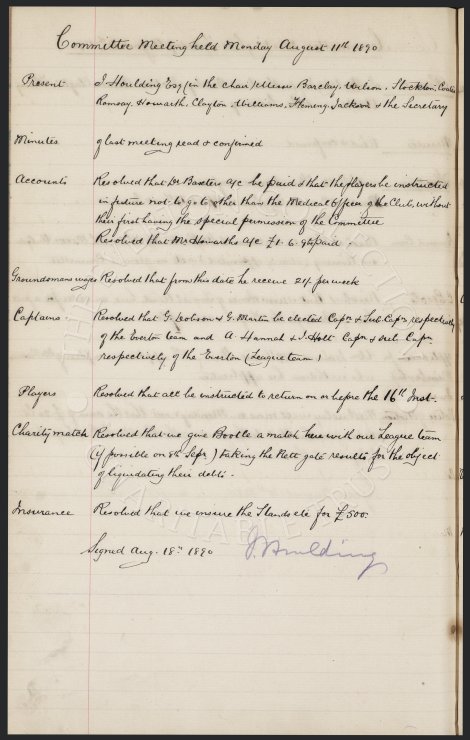 Committee Meeting held Monday August 11th 1890
Present J. Houlding Esq (in the chair) Messrs Barclay, Wilson, Stockton, Coates
Ramsay, Howarth, Clayton, Williams, Fleming, Jackson & the Secretary
Minutes of last meeting read & confirmed
Accounts Resolved that Dr Baxters a/c be paid & that the players be instructed
in future not to go to other than the Medical Officer of the Club, without
their first having the special permission of the Committee
Resolved that Mr Howarths a/c £1. 6. 9 be paid.
Groundsmans wages Resolved that from this date he receive 24/- per week
Captains. Resolved that G. Dobson & G. Martin be elected Capn & Sub-Capn respectively
of the Everton team and A. Hannah & J. Holt Capn & Sub Capn
respectively of the Everton (League team)
Players Resolved that all be instructed to return on or before the 16th Inst.
Charity match Resolved that we give Bootle a match here with our League team
(if possible on 8th Sepr.) taking the nett gate results for the object
of liquidating their debts.
Insurance Resolved that we insure the Stands etc for £500.
Signed Aug. 18th 1890 J. Houlding